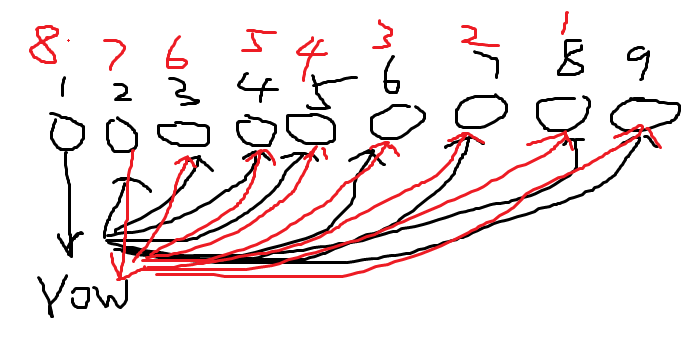 8 7 6 5 4 3 2 1
1 2 3 4 5 6 7 8 9
You